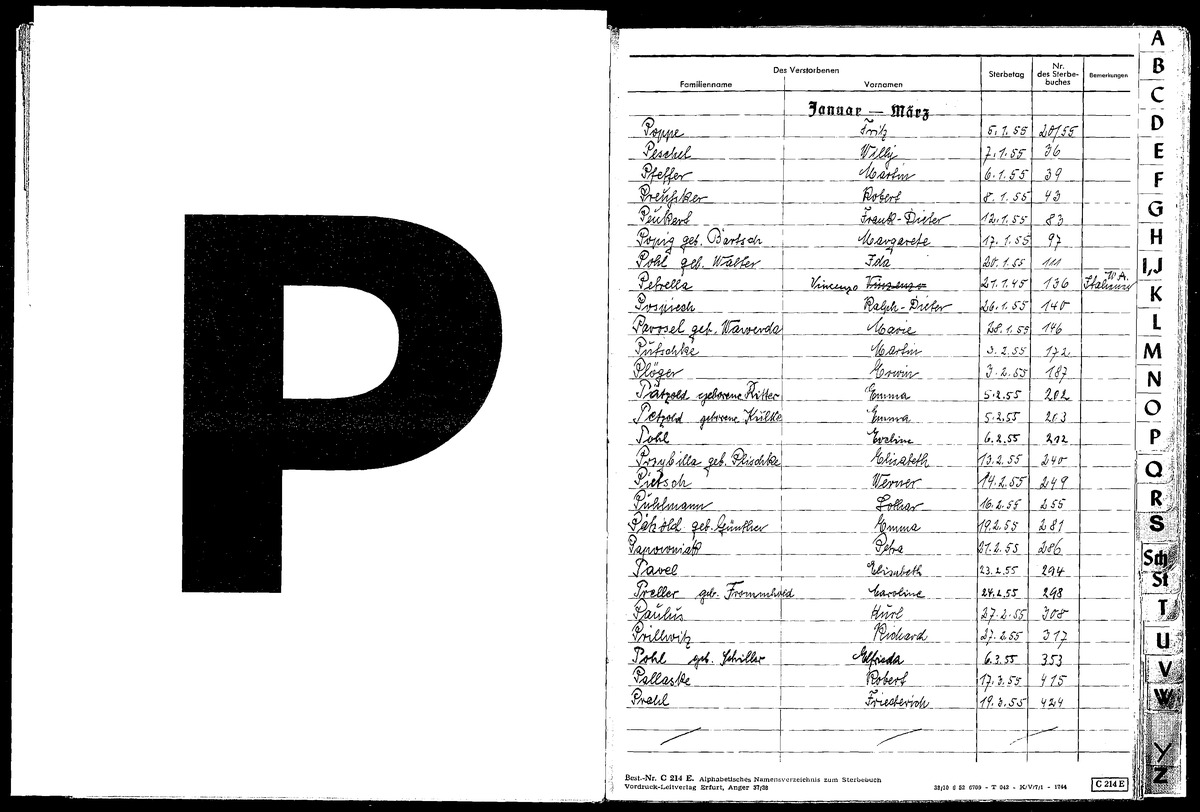 P
Des Verstorbenen
Familienname Vornamen Sterbetag Nr. des Sterbebuches Bemerkungen
Januar — März
Poppe Fritz 5.1.55 20/55
Peschel Willy 7.1.55 36
Pfeffer Martin 6.1.55 39
Preußker Robert 8.1.55 43
Peukert Frank-Dieter 12.1.55 83
Popig geb. Bartsch Margarete 17.1.55 97
Pohl geb. Walter Ida 20.1.55 111
Petrella Vincenzo Vinzenzo 21.1.45 136 W.A. Italiener
Pospiech Ralph-Dieter 26.1.55 140
geb. Wawerda Marie 28.1.55 146
Putschke Martin 3.2.55 172
Plöger Erwin 3.2.55 187
Pätzold geborene Ritter Emma 5.2.55 202
Petzold geborene Kulke Emma 5.2.55 203
Pohl Eveline 6.2.55 212
Przybilla geb. Plischke Elisabeth 13.2.55 240
Pietsch Werner 14.2.55 249
Pühlmann Lothar 16.2.55 255
Pätzold geb. Günther Emma 19.2.55 281
Petra 21.2.55 286
Pavel Elisabeth 23.2.55 294
Preller geb. Frommhold Caroline 24.2.55 298
Paulus Kurt 27.2.55 308
Prillwitz Richard 27.2.55 317
Pohl geb. Schiller Elfrieda 6.3.55 353
Pallaske Robert 17.3.55 415
Prahl Friederich 19.3.55 424
Best.-Nr. C 214 E. Alphabetisches Namensverzeichnis zum Sterbebuch
Vordruck-Leitverlag Erfurt, Anger 37/38
C 214 E
A
B
C
D
E
F
G
H
I,J
K
L
M
N
O
P
Q
R
S
Sch
St
T
U
V
W
Y
Z